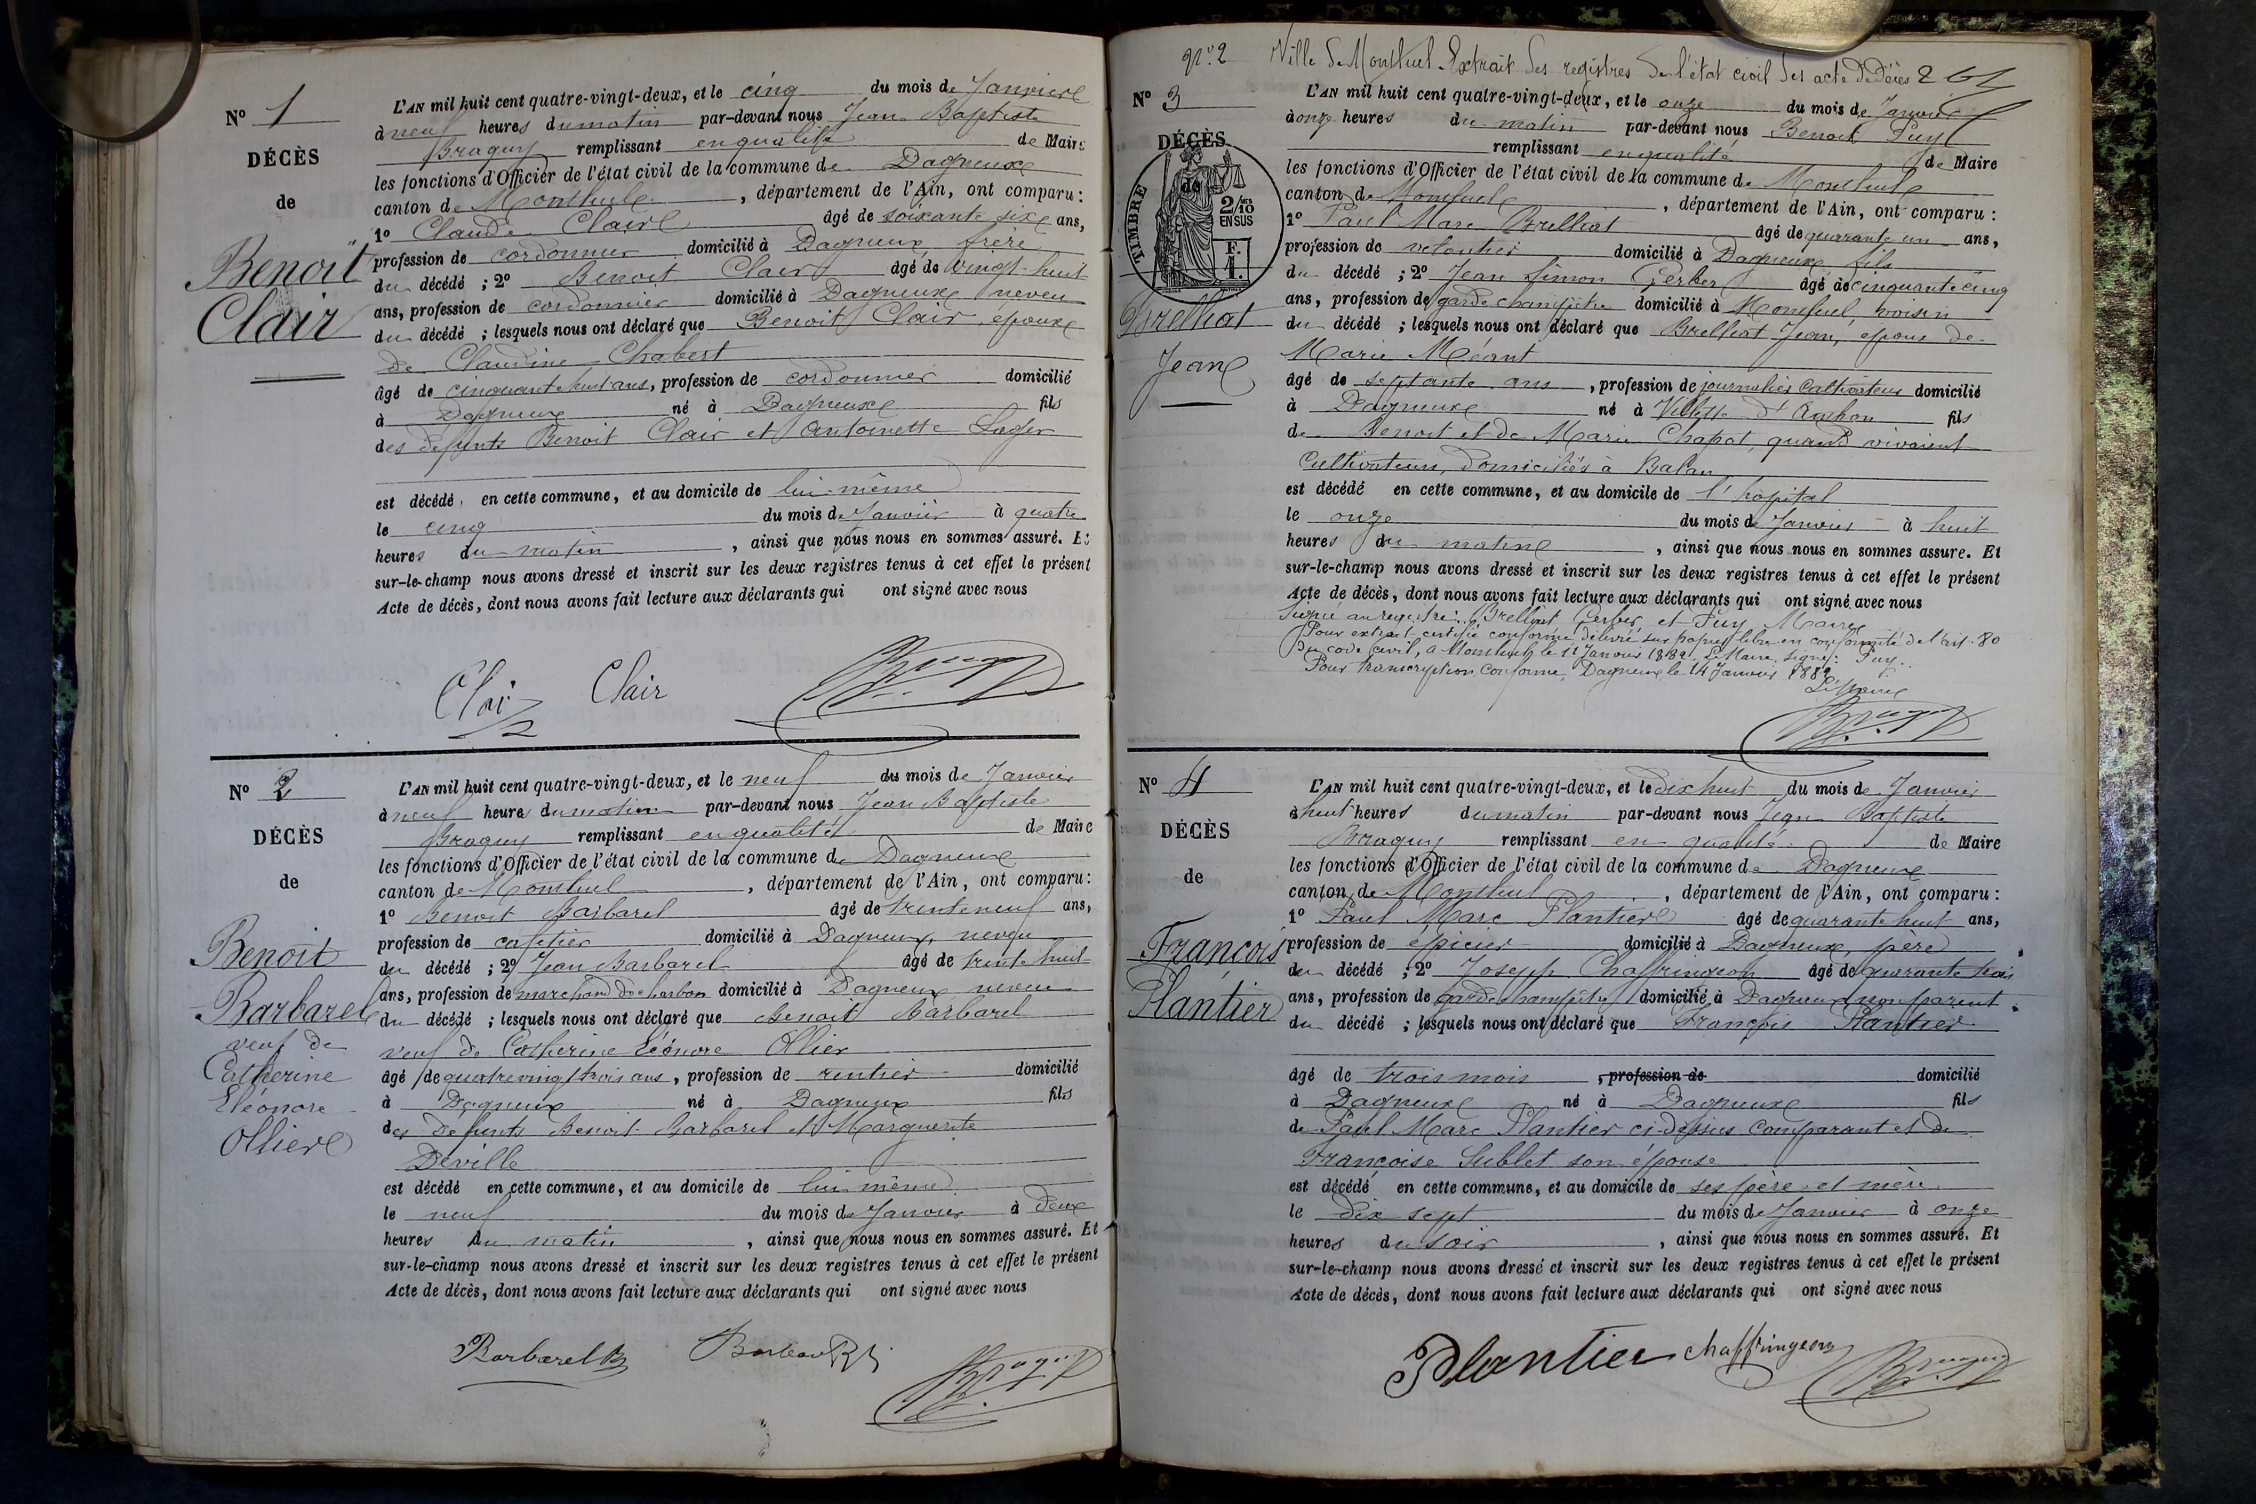 N° 1
DÉCÈS
de
Benoit
Clair
L'AN mil huit cent quatre-vingt-deux, et le cinq du mois de Janvier
à neuf heures du matin par-devant nous Jean Baptiste
Braguy remplissant en qualité de Maire
les fonctions d'Officier de l'état civil de la commune de Dagneux
canton de Montluel, département de l'Ain, ont comparu :
1° Claude Clair âgé de soixante six ans,
profession de cordonnier domicilié à Dagneux, frère
du décédé ; 2° Benoit Clair âgé de vingt-huit
ans, profession de cordonnier domicilié à Dagneux neveu
du décédé ; lesquels nous ont déclaré que Benoit Clair, époux
de Claudine Chabert
âgé de cinquante huit ans, profession de cordonnier domicilié
à Dagneux né à Dagneux fils
des défunts Benoit Clair et Antoinette Lager
est décédé en cette commune, et au domicile de lui-même
le cinq du mois de Janvier à quatre
heures du matin, ainsi que nous nous en sommes assuré. Et
sur-le-champ nous avons dressé et inscrit sur les deux registres tenus à cet effet le présent
Acte de décès, dont nous avons fait lecture aux déclarants qui ont signé avec nous
Clair Clair Braguy
N° 2
DÉCÈS
de
Benoit
Barbarel
veuf de
Catherine
Eléonore
Ollier
L'AN mil huit cent quatre-vingt-deux, et le neuf du mois de Janvier
à neuf heures du matin par-devant nous Jean Baptiste
Braguy remplissant en qualité de Maire
les fonctions d'Officier de l'état civil de la commune de Dagneux
canton de Montluel, département de l'Ain, ont comparu :
1° Benoit Barbarel âgé de trente neuf ans,
profession de cafetier domicilié à Dagneux, neveu
du décédé ; 2° Jean Barbarel âgé de trente huit
ans, profession de marchand de charbon domicilié à Dagneux neveu
du décédé ; lesquels nous ont déclaré que Benoit Barbarel
veuf de Catherine Eléonore Ollier
âgé de quatre vingt trois ans, profession de rentier domicilié
à Dagneux né à Dagneux fils
des défunts Benoit Barbarel et Marguerite
Deville
est décédé en cette commune, et au domicile de lui-même
le neuf du mois de Janvier à deux
heures du matin, ainsi que nous nous en sommes assuré. Et
sur-le-champ nous avons dressé et inscrit sur les deux registres tenus à cet effet le présent
Acte de décès, dont nous avons fait lecture aux déclarants qui ont signé avec nous
Barbarel B Braguy
N° 2 Ville de Montluel Extrait des registres de l'état civil des acte de décès 2
N° 3
DÉCÈS
de
TIMBRE
2/10 EN SUS
F. 1.
Brelliat
Jean
L'AN mil huit cent quatre-vingt-deux, et le onze du mois de Janvier
à onze heures du matin par-devant nous Benoit Puy
remplissant en qualité de Maire
les fonctions d'Officier de l'état civil de la commune de Montluel
canton de Montluel, département de l'Ain, ont comparu :
1° Paul Marc Brelliat âgé de quarante un ans,
profession de domicilié à Dagneux fils
du décédé ; 2° Jean Simon Gerber âgé de cinquante cinq
ans, profession de garde champêtre domicilié à Montluel, voisin
du décédé ; lesquels nous ont déclaré que Brelliat Jean, époux de
Marie Méant
âgé de septante ans, profession de journalier cultivateur domicilié
à Dagneux né à Villette d'Anthon fils
de Benoit et de Marie Chapot, quand vivaient
cultivateurs, domiciliés à Balan
est décédé en cette commune, et au domicile de l'hopital
le onze du mois de Janvier à huit
heures du matin, ainsi que nous nous en sommes assure. Et
sur-le-champ nous avons dressé et inscrit sur les deux registres tenus à cet effet le présent
Acte de décès, dont nous avons fait lecture aux déclarants qui ont signé avec nous
Signé au registre : Brelliat Gerber et Puy Maire
Pour extrait certifié conforme délivré sur papier libre en conformité de l'art. 80
du code civil, à Montluel le 11 Janvier 1882. Le Maire signé : Puy.
Pour transcription conforme, Dagneux le 14 Janvier 1882
Le Maire
Braguy
N° 4
DÉCÈS
de
François
Plantier
L'AN mil huit cent quatre-vingt-deux, et le dix huit du mois de Janvier
à huit heures du matin par-devant nous Jean Baptiste
Braguy remplissant en qualité de Maire
les fonctions d'Officier de l'état civil de la commune de Dagneux
canton de Montluel, département de l'Ain, ont comparu :
1° Paul Marc Plantier âgé de quarante huit ans,
profession de épicier domicilié à Dagneux, père
du décédé ; 2° Joseph Chaffringeon âgé de quarante trois
ans, profession de garde champêtre domicilié à Dagneux non parent
du décédé ; lesquels nous ont déclaré que François Plantier
âgé de trois mois, profession de domicilié
à Dagneux né à Dagneux fils
de Paul Marc Plantier ci-dessus comparant et de
Françoise Sublet son épouse
est décédé en cette commune, et au domicile de ses père et mère
le dix sept du mois de Janvier à onze
heures du soir, ainsi que nous nous en sommes assuré. Et
sur-le-champ nous avons dressé et inscrit sur les deux registres tenus à cet effet le présent
Acte de décès, dont nous avons fait lecture aux déclarants qui ont signé avec nous
Plantier chaffringeon Braguy